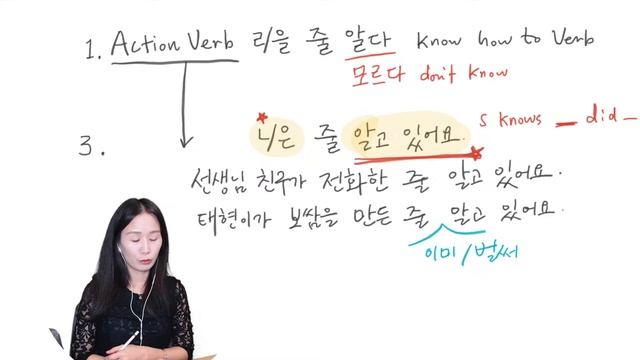 1. Action Verb ㄹ/을 줄 알다 know how to Verb
모르다 don't know
3. ㄴ/은 줄 알고 있어요. S knows _ did _
선생님 친구가 전화한 줄 알고 있어요.
태현이가 보쌈을 만든 줄 알고 있어요.
이미/벌써